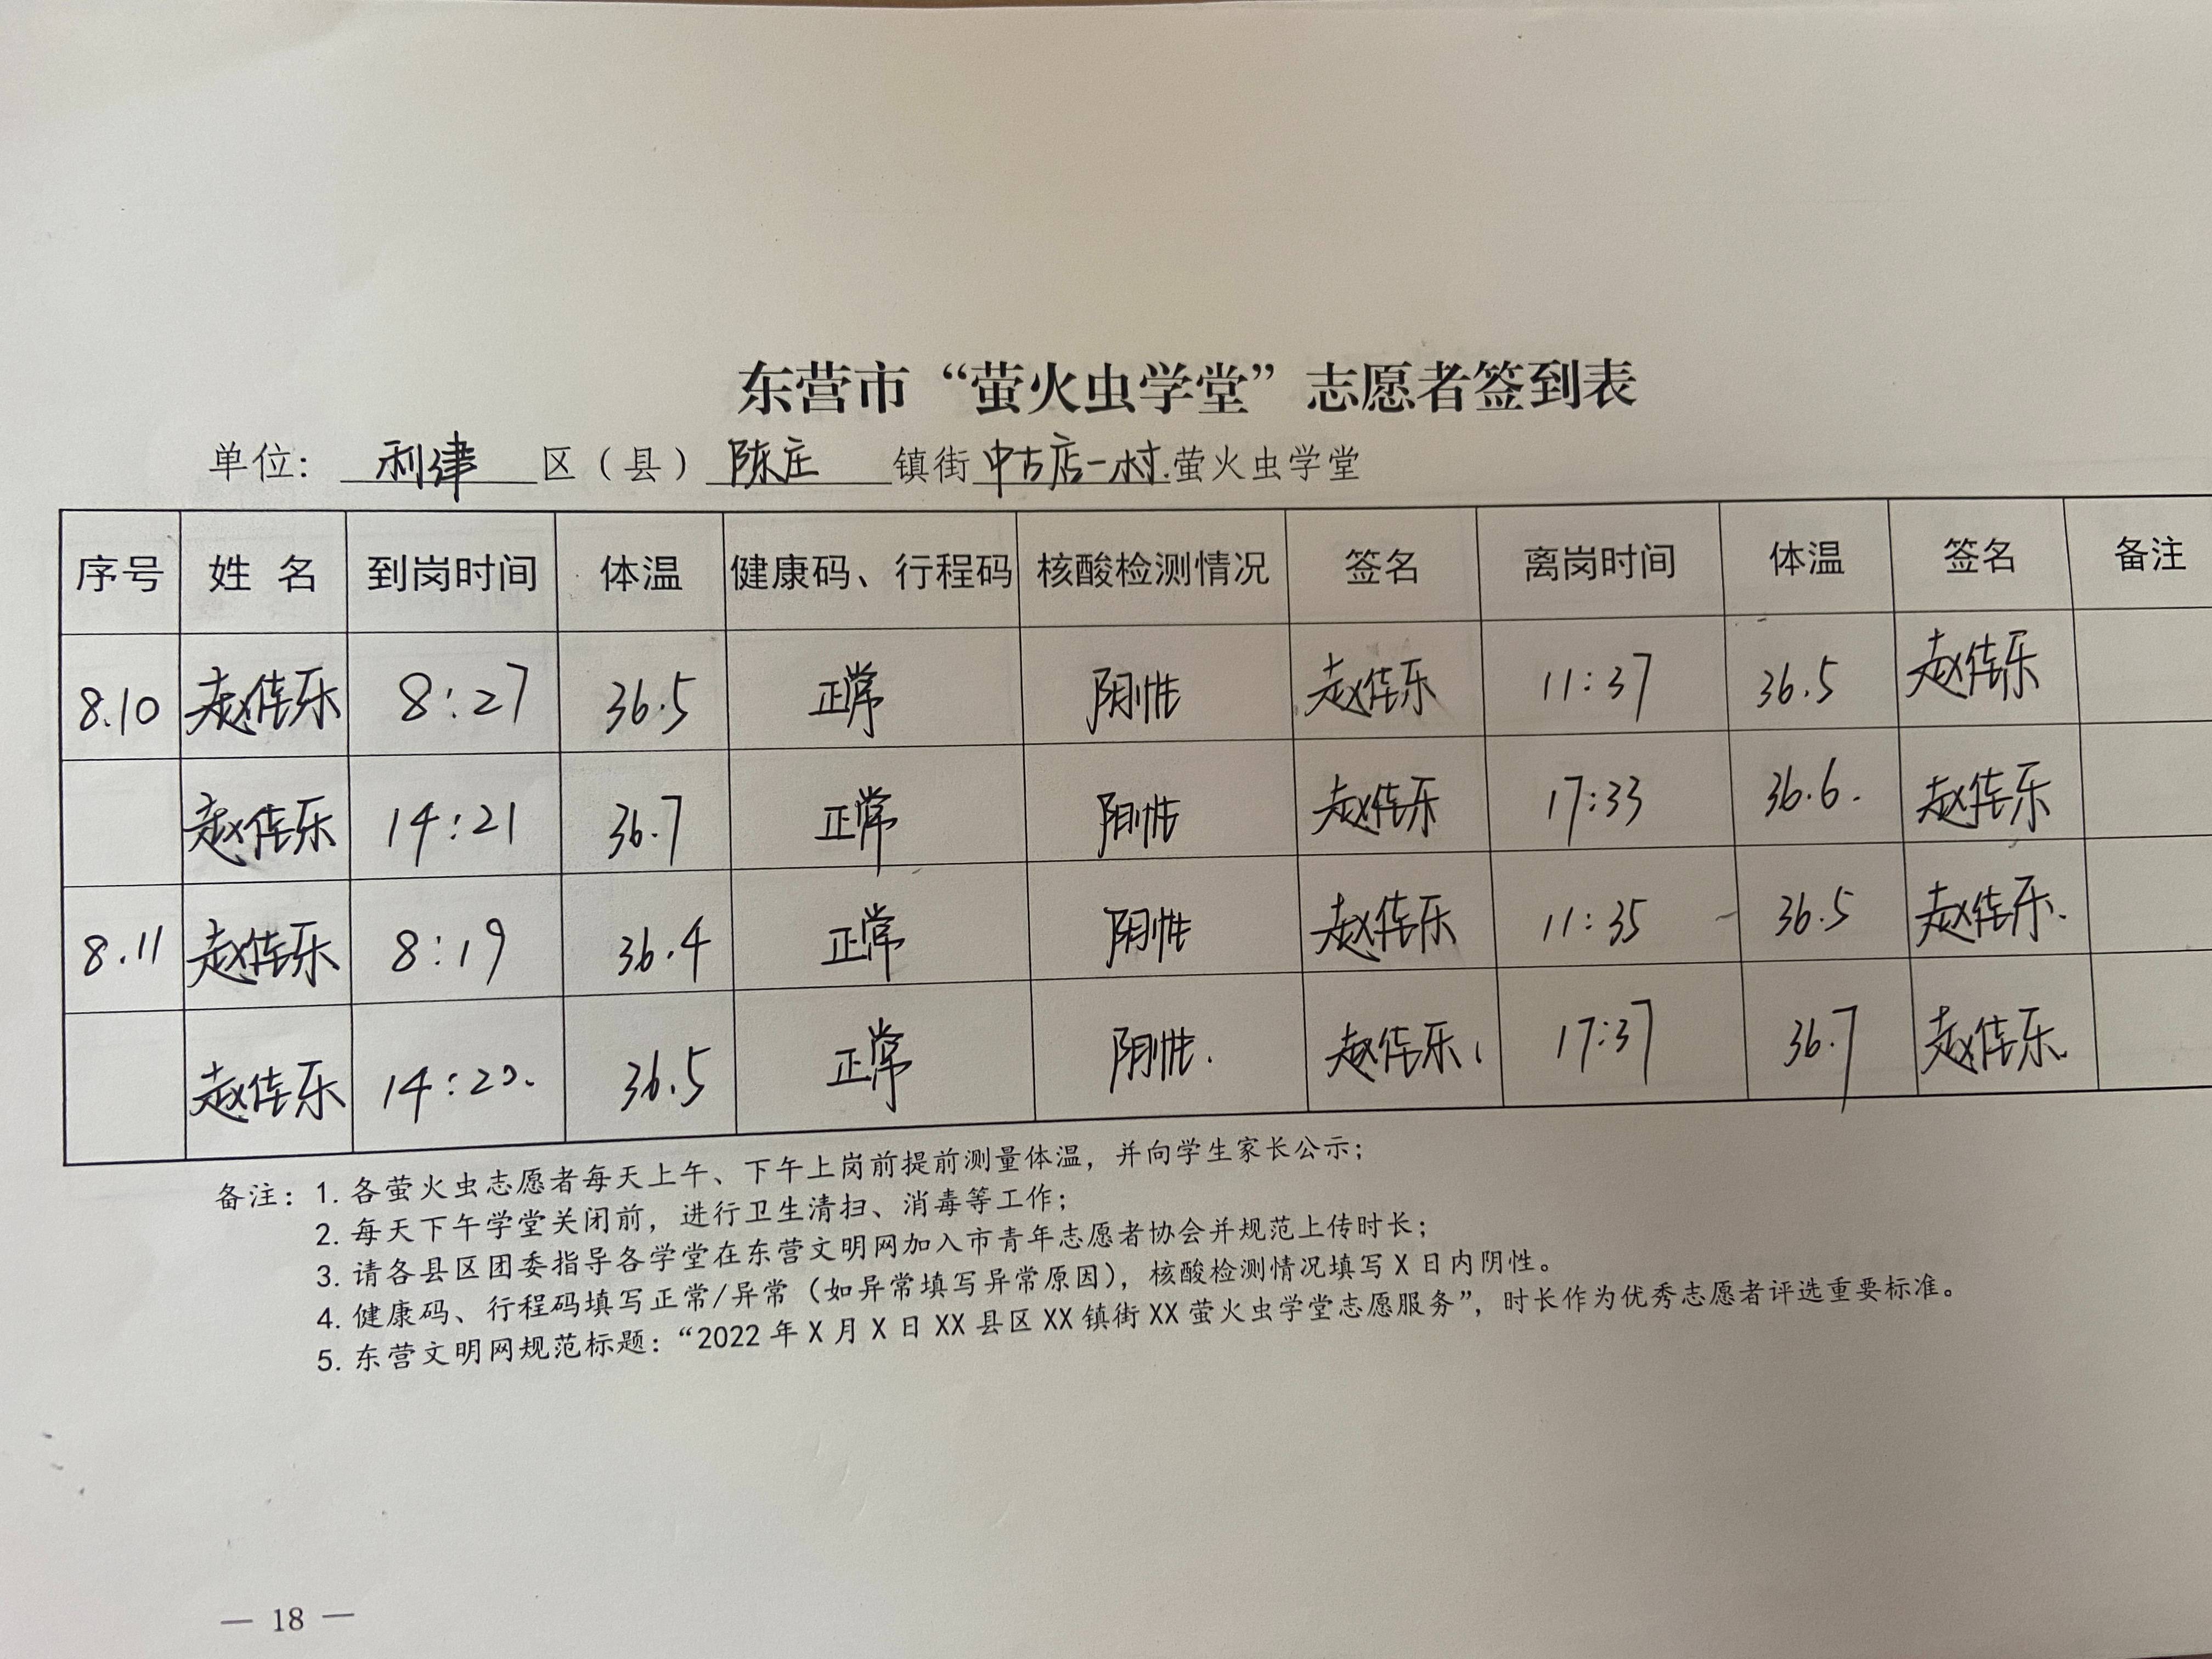 东营市“萤火虫学堂”志愿者签到表
单位： 利津 区（县） 陈庄 镇街 中古店一村. 萤火虫学堂
序号 姓 名 到岗时间 体温 健康码、行程码 核酸检测情况 签名 离岗时间 体温 签名 备注
8.10 赵佳乐 8:27 36.5 正常 阴性 赵佳乐 11:37 36.5 赵佳乐
赵佳乐 14:21 36.7 正常 阴性 赵佳乐 17:33 36.6. 赵佳乐
8.11 赵佳乐 8:19 36.4 正常 阴性 赵佳乐 11:35 36.5 赵佳乐.
赵佳乐 14:20. 36.5 正常 阴性. 赵佳乐. 17:37 36.7 赵佳乐.
备注：1. 各萤火虫志愿者每天上午、下午上岗前提前测量体温，并向学生家长公示；
2. 每天下午学堂关闭前，进行卫生清扫、消毒等工作；
3. 请各县区团委指导各学堂在东营文明网加入市青年志愿者协会并规范上传时长；
4. 健康码、行程码填写正常/异常（如异常填写异常原因），核酸检测情况填写 X 日内阴性。
5. 东营文明网规范标题：“2022 年 X 月 X 日 XX 县区 XX 镇街 XX 萤火虫学堂志愿服务”，时长作为优秀志愿者评选重要标准。
— 18 —